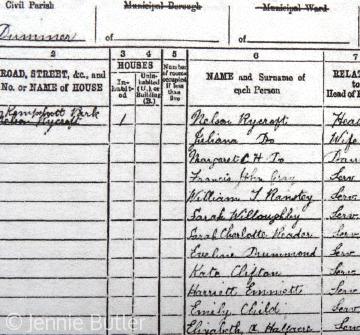 Civil Parish
Municipal Borough
Municipal Ward
Dummer
of
of
2 3 4 5 6 7
ROAD, STREET, &c., and No. or NAME of HOUSE
HOUSES
In-habit-ed
Uninhabited (U.), or Building (B.)
Number of rooms occupied if less than five
NAME and Surname of each Person
RELAT
to
Head of F
Kempshott Park
Rycroft 1 Nelson Rycroft Head
Juliana Do Wife
Margaret C H Do Dau
Francis John Gray Serv
William T Ranstey Serv
Sarah Willoughby Serv
Sarah Charlotte Reader Serv
Eveline Drummond Serv
Kate Clifton Serv
Harriett Emmett Serv
Emily Child Serv
Elizabeth A Halfacre Serv
© Jennie Butler